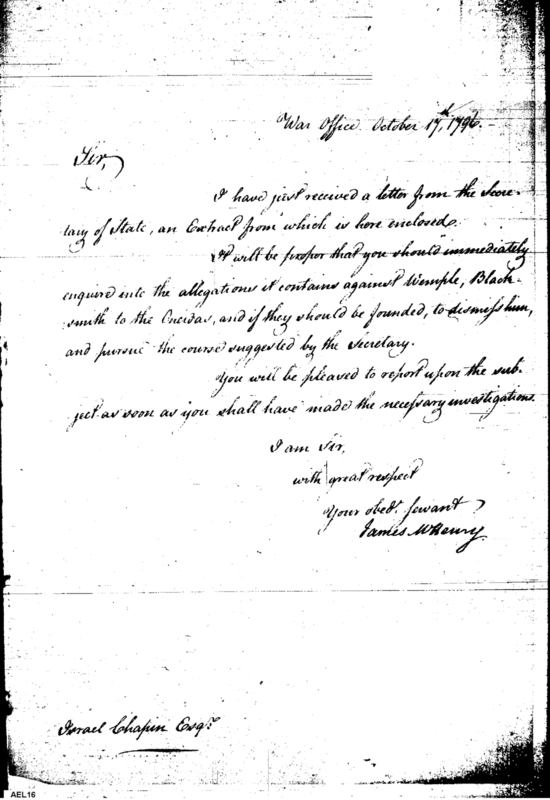 War Office October 17th, 1796.
Sir,
I have just received a letter from the Secre-
tary of State, an Extract from which is here enclosed.
It will be proper that you should immediately
enquire into the allegations it contains against Wemple, Black-
smith to the Oneidas, and if they should be founded, to dismiss him,
and pursue the course suggested by the Secretary.
You will be pleased to report upon the sub-
ject as soon as you shall have made the necessary investigations.
I am Sir,
with great respect
Your obedt. Servant
James McHenry.
Israel Chapin Esqr.
AEL16